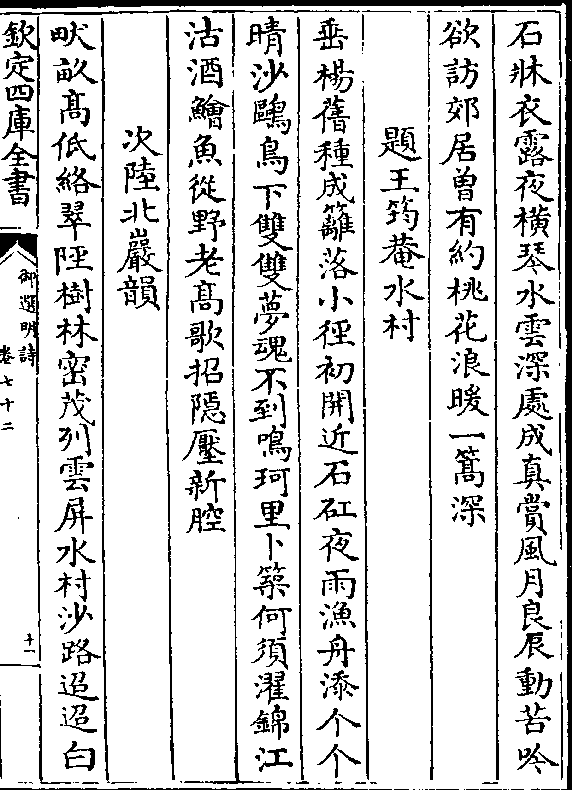 石牀衣露夜横琴水雲深處成真賞風月良辰動苦吟
欲訪郊居曽有約桃花浪暖一篙深
題王筠菴水村
垂楊舊種成籬落小徑初開近石矼夜雨漁舟添个个
晴沙鷗鳥下雙雙夢魂不到鳴珂里卜築何須濯錦江
沽酒鱠魚從野老髙歌招隠壓新腔
次陸北巖韻
畎畝髙低絡翠陘樹林宻茂列雲屏水村沙路迢迢白
欽定四庫全書
御選明詩
卷七十二
十一